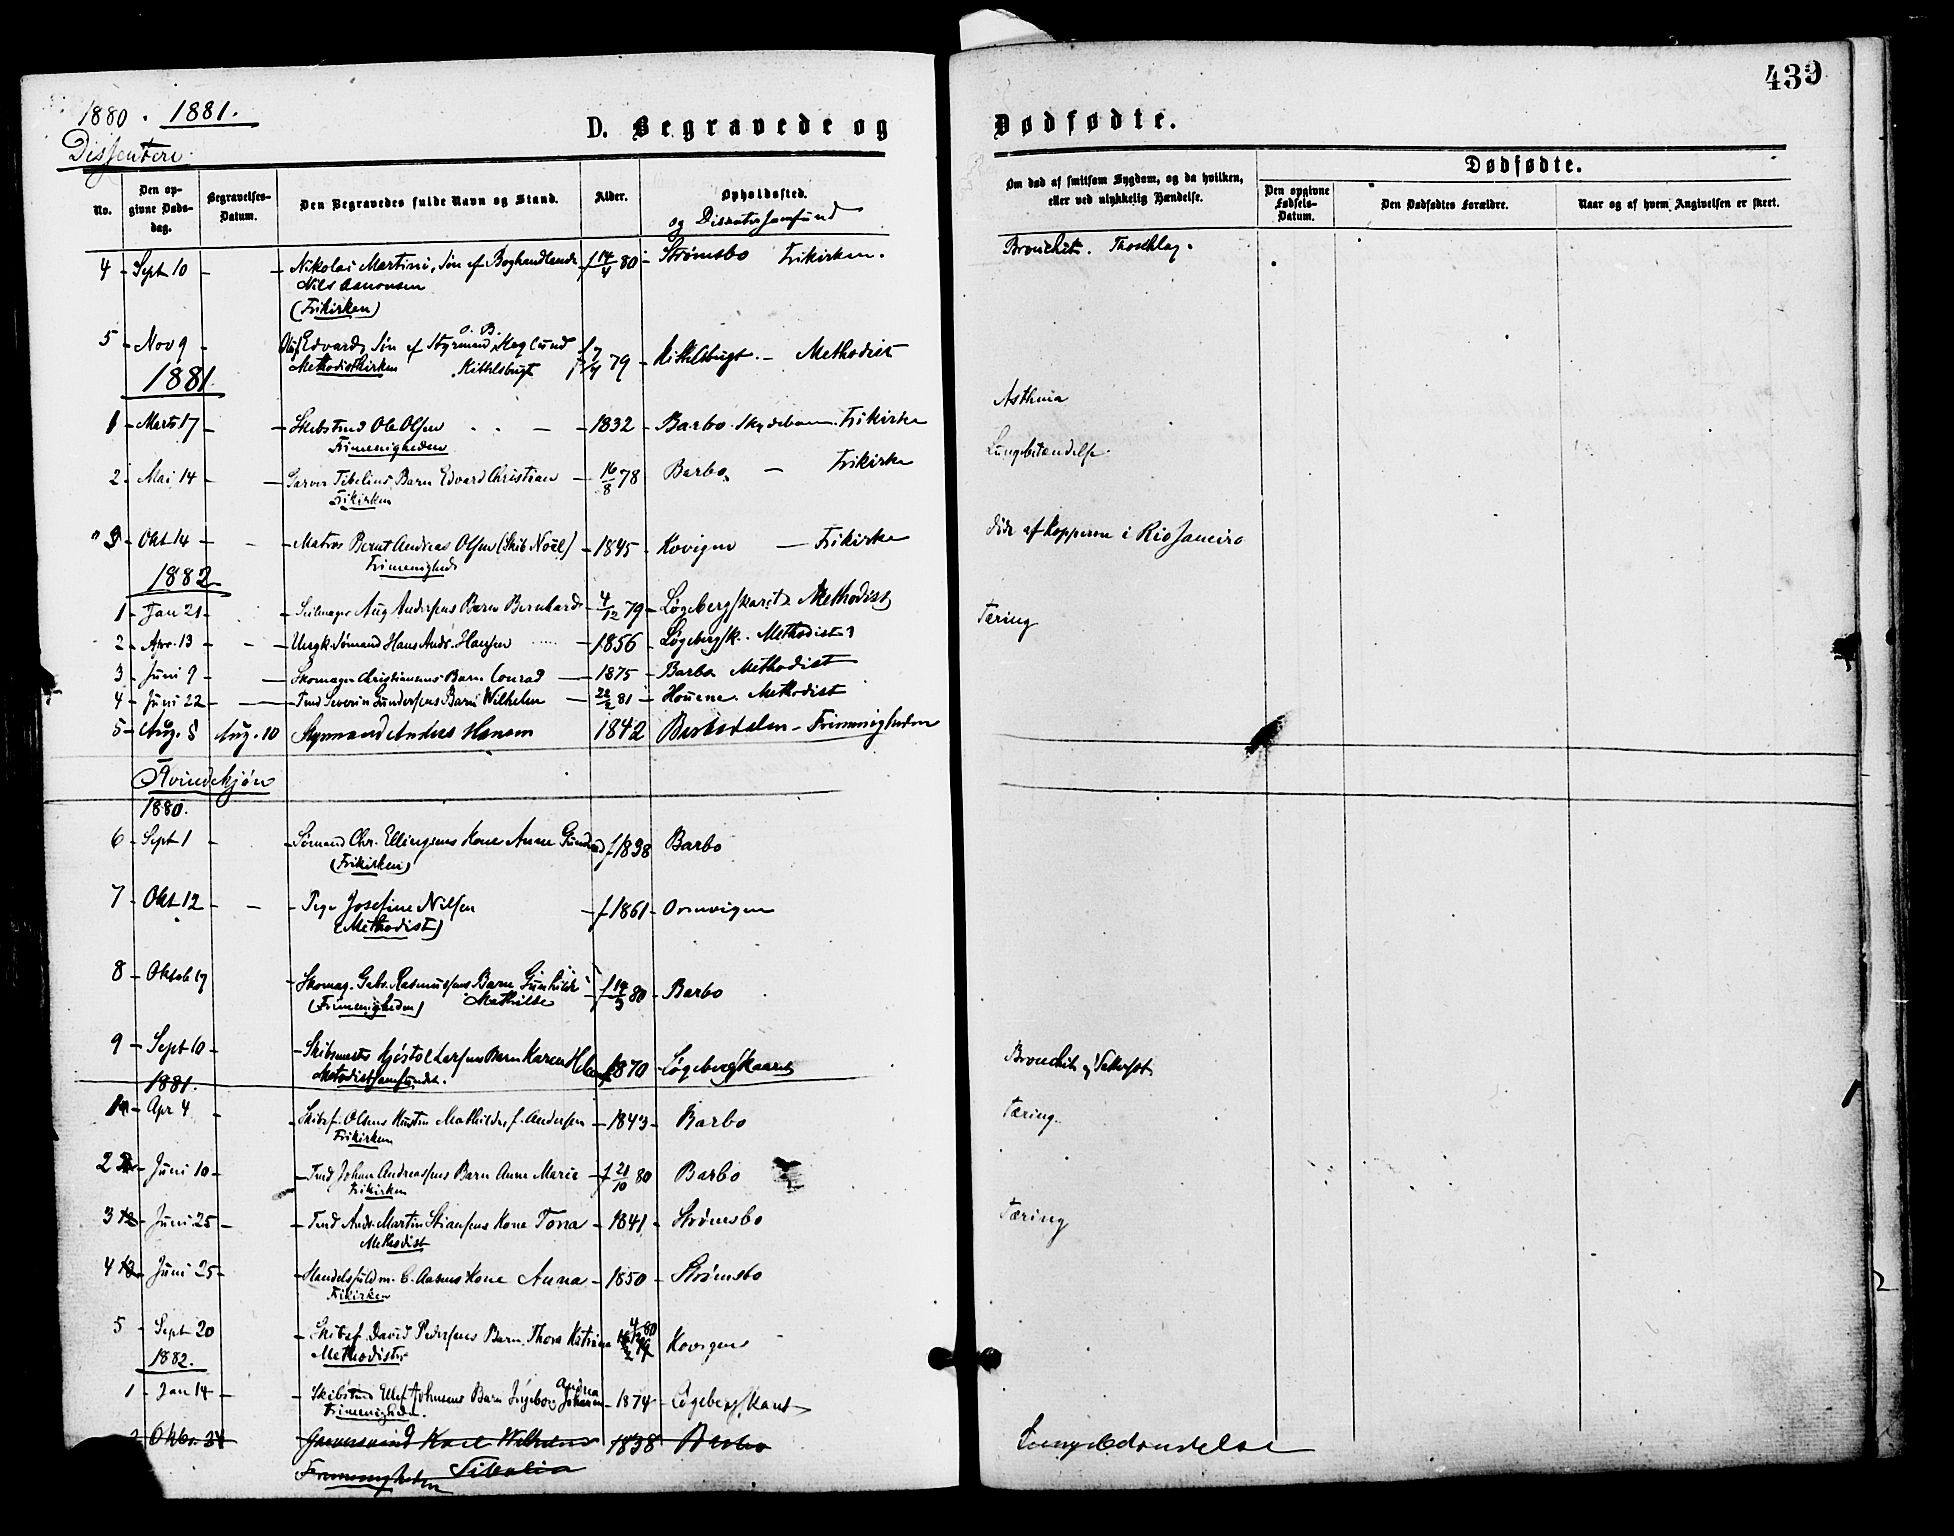 439
1880. 1881.
Dissentere.
D. Begravede og Dødfødte.
No.
Den opgivne Dødsdag.
Begravelses-Datum.
Den Begravedes fulde Navn og Stand.
Alder.
Opholdssted.
og Dissentersamfund
Om død af smitsom Sygdom, og da hvilken, eller ved ulykkelig Hændelse.
Dødfødte.
Den opgivne Fødsels-Datum.
Den Dødfødtes Forældre.
Naar og af hvem Angivelsen er skeet.
4 - Sept 10 - - Nikolai Martini, Søn af Boghandler f 14/4 80 - Strømsbo Frikirken. Bronchit.
Nils Aanonsen
(Frikirken)
5 - Nov 9 - Olaf Edvard, Søn af Styrmand O. B. Heglund f 7/4 79 - Kittelsbugt - Methodist
Methodistkirken Kittelsbugt
1881.
Asthma
1 - Marts 17 - - Skibstmd Ole Olsen - 1832 - Barbo Frikirke
Frimenigheden
Lungebetændelse
2 - Mai 14 - - Barn Edvard Christian - 16/8 78 Barbo - Frikirke
Frikirken
3 - Okt 14 - - Matros Bernt Andreas Olsen (Skib Noël) - 1845 - Kovigen - Frikirke døde af Kopperne i Rio Janeiro
Frimenighed
1882
1 - Jan 21 - Seilmager Aug Andersens Barn Bernhard - 4/12 79 - Løgebergskaret Methodist Tæring
2 - Apr. 13 - - Ungk. Sømand Hans Andr. Hansen - 1856 - Løgebergsk. Methodist
3 - Juni 9 - Skomager Christiansens Barn Conrad - 1875 - Barbo Methodist
4 - Juni 22 - - Tmd Severin Gundersens Barn Wilhelm - 22/2 81 - Houene. Methodist
5 - Aug. 8 Aug. 10 Styrmand Anders Hansen 1842 Barbodalen - Frimenigheden
Kvindekjøn
1880.
6 - Sept 1 - Sømand Chr. Ellingsens Kone Anne f 1838 Barbo
(Frikirken)
7 - Okt 12 - - Pige Josefine Nilsen - f 1861 -
(Methodist)
8 - Oktob 19 - Skomag. Gabr. Rasmussens Barn Gunhilde - f 19/3 80 - Barbo
(Frimenigheden) Mathilde
9 - Sept 10 - - Skibsmester Gjøstol Larsens Barn Karen f 1870 - Løgebergskaaret Bronchit
Methodistsamfundet.
1881.
1 - Apr 4 - - Skibsf. Olsens Hustru Mathilde, f. Andersen - 1843 - Barbo Tæring.
Frikirken
2 - Juni 10 - - Tmd Johan Andreassens Barn Anne Marie - f 21/10 80 Barbo
Frikirken
3 - Juni 25 - - Tmd Andr. Martin Stiansens Kone Tora - 1841 - Strømsbo Tæring
Methodist
4 - Juni 25 - - Handelsfuldm. C. Aasens Kone Anna - 1850 - Strømsbo
Frikirken
5 - Sept 20 - Skibsf. David Pedersens Barn Thora Katrine Kovigen
Methodister
1882.
1 - Jan 14 - - Skibstmd Ellef Johnsens Barn Ingeborg Andrea Johanne - 1874 - Løgebergskaret
Frimenigheden.
2 Okbr. 31 Karl Wilhelms 1838 Barbo Lungebetændelse
Frimenigheden